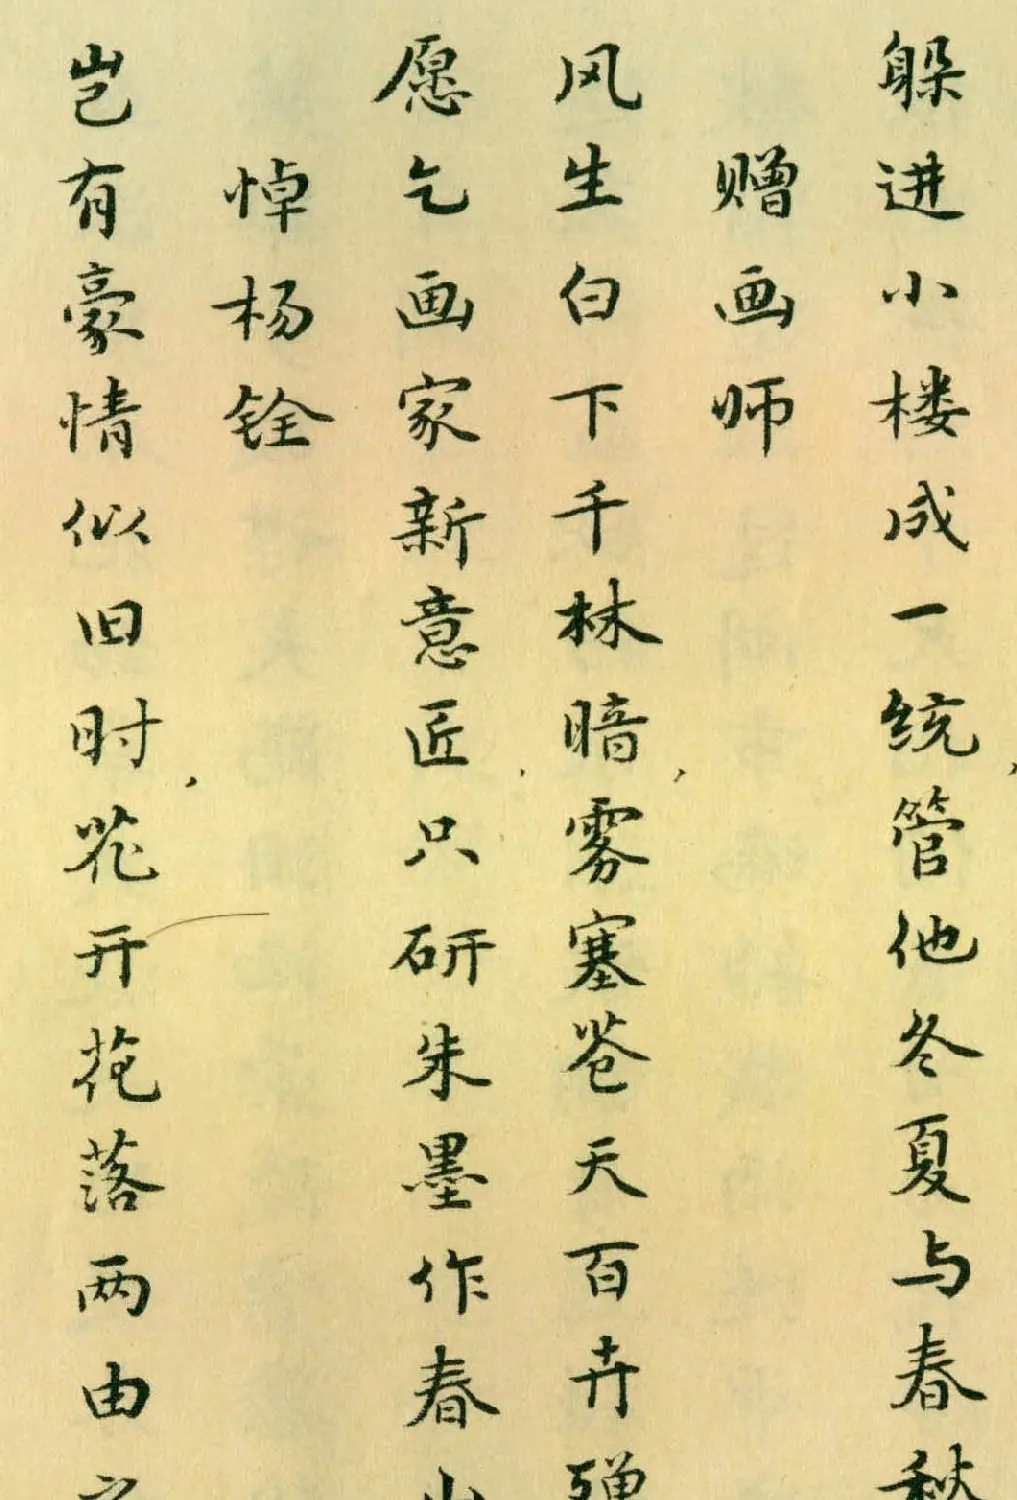 躲进小楼成一统，管他冬夏与春秋
赠画师
风生白下千林暗，雾塞苍天百卉殚
愿乞画家新意匠，只研朱墨作春山
悼杨铨
岂有豪情似旧时，花开花落两由